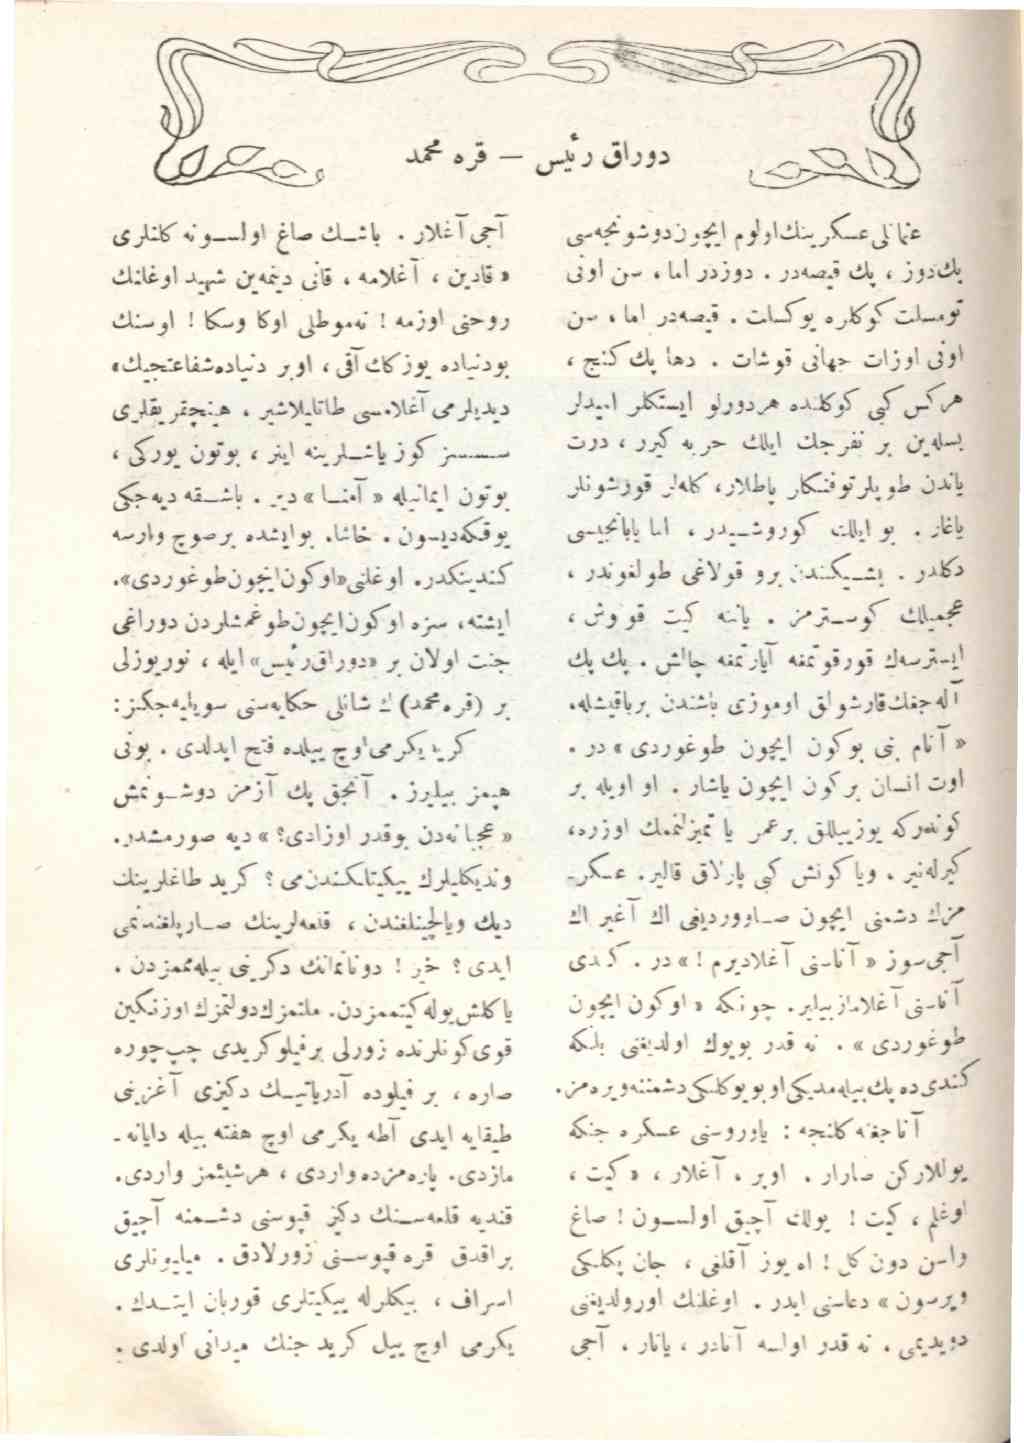 دوراق رئیس — قره محمد
عثمانلی عسکرینك اولوم ایچون دوشونجه‌سی
پك دوز ، پك قیصه‌در . دوزدر اما ، سن اونی
توسلت کوکلره یوکسلت . قیصه‌در اما ، سن
اونی اوزات جهانی قوشات . دها پك کنج ،
هرکس کبی کوکلنده هر دورلو ایستکلر امیدلر
بسله‌ین بر نفرجك ایلك حربه کیرر ، درت
یاندن طوپلر توفنکلر پاطلار، کله‌لر قورشونلر
یاغار . بو ایلك کوروشیدر ، اما یابانجیسی
دکلدر . بشیکندن برو قولاغی طولغوندر ،
عجمیلك کوسترمز . یاننه کیت قووش ،
ایسترسه‌ك قورقوتمغه آیارتمغه چالش . پك پك
آله‌جغك قارشولق اوموزی باشندن بر باقیشله،
« آنام بنی بوکون ایچون طوغوردی » در .
اوت انسان بر کون ایچون یاشار . او اویله بر
کوندرکه یوز ییللق بر عمر یا تمیزلنمك اوزره،
کیرله‌نیر . ویا کونش کبی پارلاق قالیر. عسکر-
مزك دشمنی ایچون صاووردیغی اك آغیر اك
آجی سوز « آناسنی آغلادیرم ! » در . کندی
آناسنی آغلاماز بیلیر. چونکه « اوکون ایچون
طوغوردی » . نه قدر بویوك اولدیغنی بلکه
کندی ده پك بیله‌مدیکی او بویوکلکی دشمننه ویره‌مز.
آناجغنه کلنجه : یاوروسنی عسکره جنکه
یوللارکن صارار . اوپر . آغلار ، « کیت ،
اوغلم ، کیت ! یولك آچیق اولسون ! صاغ
واسن دون کل ! اه یوز آقلغی ، جان پکلکی
ویرسون » دعاسنی ایدر . اوغلنك اورولدیغنی
دویدیمی . نه قدر اولسه آنادر ، یانار . آجی
آجی آغلار . باشك صاغ اولسونه کلنلری
« قادین ، آغلامه ، قانی دینمه‌ین شهید اوغلنك
روحنی اوزمه ! نه‌موطلی اوکا وسکا ! اوسنك
بودنیاده یوزکك آقی ، اوبر دنیاده شفاعتجیك»
دیدیلرمی آغلامسی طاتلیلاشیر ، هیچقیریقلری
سسسز کوز یاشلرینه اینر ، بوتون یورکی ،
بوتون ایمانیله « آمنا » دیر . باشقه دیه‌جکی
یوقکه دیسون . حاشا. بوایشده برصوچ وارسه
کندینکدر. اوغلنی «اوکون ایچون طوغوردی».
ایشته، سزه اوکون ایچون طوغمشلردن دوراغی
جنت اولان بر «دوراق رئیس» ایله ، نور یوزلی
بر (قره محمد) ك شانلی حکایه‌سنی سویلیه‌جکز:
کرید یکرمی اوچ ییلده فتح ایدلدی . بونی
هپمز بیلیرز . آنجق پك آزمز دوشونمش
« عجبا نه‌دن بوقدر اوزادی؟ » دیه صورمشدر.
وندیکلیلرك ییکیتلکندن می ؟ کرید طاغلرینك
دیك ویالچینلغندن ، قلعه‌لرینك صارپلغندنمی
ایدی ؟ خیر ! دونانمانك دکرینی بیله‌مه‌مزدن .
یاکلش یوله کیتمه‌مزدن. ملتمزك دولتمزك اوزنکین
قوی کونلرنده زورلی بر فیلو کریدی چپ‌چوره
صاره ، بر فیلوده آدریاتیك دکیزی آغزینی
طیقایه ایدی آطه یکرمی اوچ هفته بیله دایانه-
مازدی. پاره‌مزده واردی ، هرشیئمز واردی.
قندیه قلعه‌سنك دکیز قپوسنی دشمنه آچیق
براقدق قره قپوسنی زورلادق . میلیونلری
اسراف ، بیکلرله ییکیتلری قوربان ایتدك .
یکرمی اوچ ییل کرید جنك میدانی اولدی .